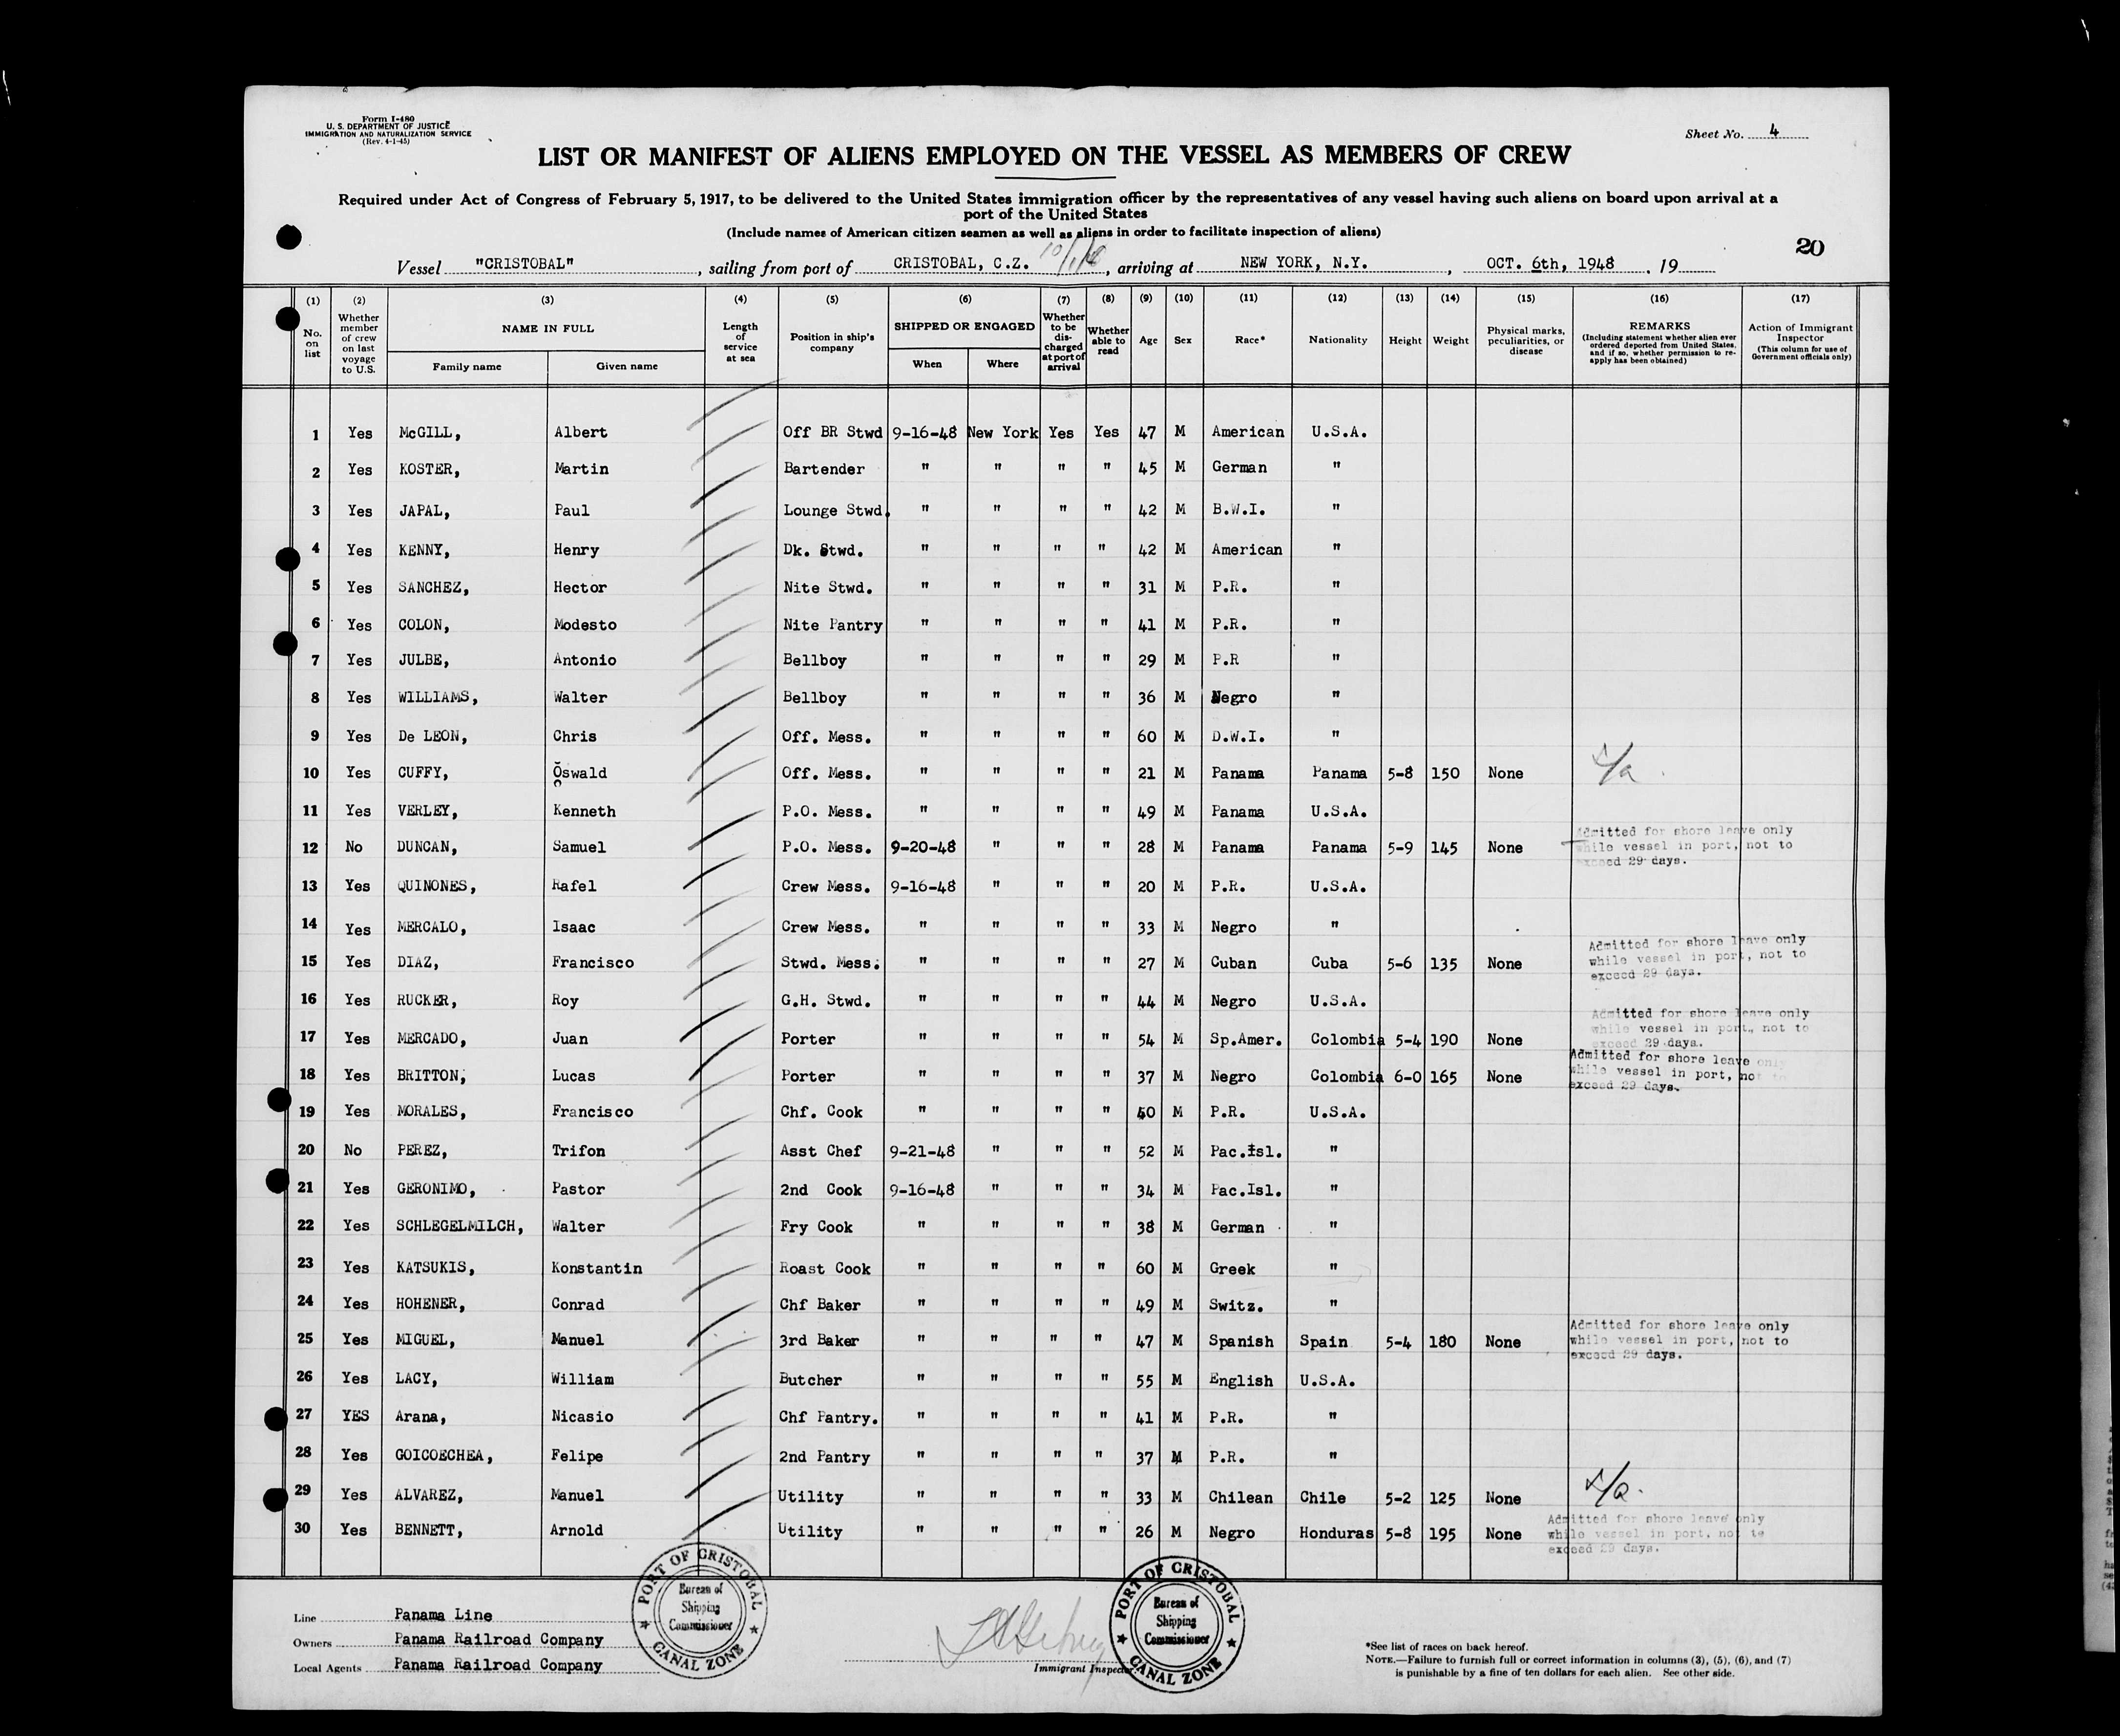 Form I-480
U. S. DEPARTMENT OF JUSTICE
IMMIGRATION AND NATURALIZATION SERVICE
(Rev. 4-1-45)
Sheet No. 4
LIST OR MANIFEST OF ALIENS EMPLOYED ON THE VESSEL AS MEMBERS OF CREW
Required under Act of Congress of February 5, 1917, to be delivered to the United States immigration officer by the representatives of any vessel having such aliens on board upon arrival at a
port of the United States
(Include names of American citizen seamen as well as aliens in order to facilitate inspection of aliens)
20
Vessel "CRISTOBAL", sailing from port of CRISTOBAL, C.Z., arriving at NEW YORK, N.Y., OCT. 6th, 1948, 19
(1) No. on list
(2) Whether member of crew on last voyage to U.S.
(3) NAME IN FULL Family name Given name
(4) Length of service at sea
(5) Position in ship's company
(6) SHIPPED OR ENGAGED When Where
(7) Whether to be discharged at port of arrival
(8) Whether able to read
(9) Age
(10) Sex
(11) Race*
(12) Nationality
(13) Height
(14) Weight
(15) Physical marks, peculiarities, or disease
(16) REMARKS (Including statement whether alien ever ordered deported from United States, and if so, whether permission to re-apply has been obtained)
(17) Action of Immigrant Inspector (This column for use of Government officials only)
1 Yes McGILL, Albert Off BR Stwd 9-16-48 New York Yes Yes 47 M American U.S.A.
2 Yes KOSTER, Martin Bartender " " " " 45 M German "
3 Yes JAPAL, Paul Lounge Stwd. " " " " 42 M B.W.I. "
4 Yes KENNY, Henry Dk. Stwd. " " " " 42 M American "
5 Yes SANCHEZ, Hector Nite Stwd. " " " " 31 M P.R. "
6 Yes COLON, Modesto Nite Pantry " " " " 41 M P.R. "
7 Yes JULBE, Antonio Bellboy " " " " 29 M P.R "
8 Yes WILLIAMS, Walter Bellboy " " " " 36 M Negro "
9 Yes De LEON, Chris Off. Mess. " " " " 60 M D.W.I. "
10 Yes CUFFY, Oswald Off. Mess. " " " " 21 M Panama Panama 5-8 150 None
11 Yes VERLEY, Kenneth P.O. Mess. " " " " 49 M Panama U.S.A.
12 No DUNCAN, Samuel P.O. Mess. 9-20-48 " " " 28 M Panama Panama 5-9 145 None Admitted for shore leave only while vessel in port, not to exceed 29 days.
13 Yes QUINONES, Rafel Crew Mess. 9-16-48 " " " 20 M P.R. U.S.A.
14 Yes MERCALO, Isaac Crew Mess. " " " " 33 M Negro "
15 Yes DIAZ, Francisco Stwd. Mess. " " " " 27 M Cuban Cuba 5-6 135 None Admitted for shore leave only while vessel in port, not to exceed 29 days.
16 Yes RUCKER, Roy G.H. Stwd. " " " " 44 M Negro U.S.A.
17 Yes MERCADO, Juan Porter " " " " 54 M Sp.Amer. Colombia 5-4 190 None Admitted for shore leave only while vessel in port, not to exceed 29 days.
18 Yes BRITTON, Lucas Porter " " " " 37 M Negro Colombia 6-0 165 None Admitted for shore leave only while vessel in port, not to exceed 29 days.
19 Yes MORALES, Francisco Chf. Cook " " " " 40 M P.R. U.S.A.
20 No PEREZ, Trifon Asst Chef 9-21-48 " " " 52 M Pac.Isl. "
21 Yes GERONIMO, Pastor 2nd Cook 9-16-48 " " " 34 M Pac.Isl. "
22 Yes SCHLEGELMILCH, Walter Fry Cook " " " " 38 M German "
23 Yes KATSUKIS, Konstantin Roast Cook " " " " 60 M Greek "
24 Yes HOHENER, Conrad Chf Baker " " " " 49 M Switz. "
25 Yes MIGUEL, Manuel 3rd Baker " " " " 47 M Spanish Spain 5-4 180 None Admitted for shore leave only while vessel in port, not to exceed 29 days.
26 Yes LACY, William Butcher " " " " 55 M English U.S.A.
27 YES Arana, Nicasio Chf Pantry. " " " " 41 M P.R. "
28 Yes GOICOECHEA, Felipe 2nd Pantry " " " " 37 M P.R. "
29 Yes ALVAREZ, Manuel Utility " " " " 33 M Chilean Chile 5-2 125 None
30 Yes BENNETT, Arnold Utility " " " " 26 M Negro Honduras 5-8 195 None Admitted for shore leave only while vessel in port, not to exceed 29 days.
Line Panama Line
Owners Panama Railroad Company
Local Agents Panama Railroad Company
PORT OF CRISTOBAL
Bureau of
Shipping
Commissioner
CANAL ZONE
Immigrant Inspector
PORT OF CRISTOBAL
Bureau of
Shipping
Commissioner
CANAL ZONE
*See list of races on back hereof.
NOTE.—Failure to furnish full or correct information in columns (3), (5), (6), and (7)
is punishable by a fine of ten dollars for each alien. See other side.